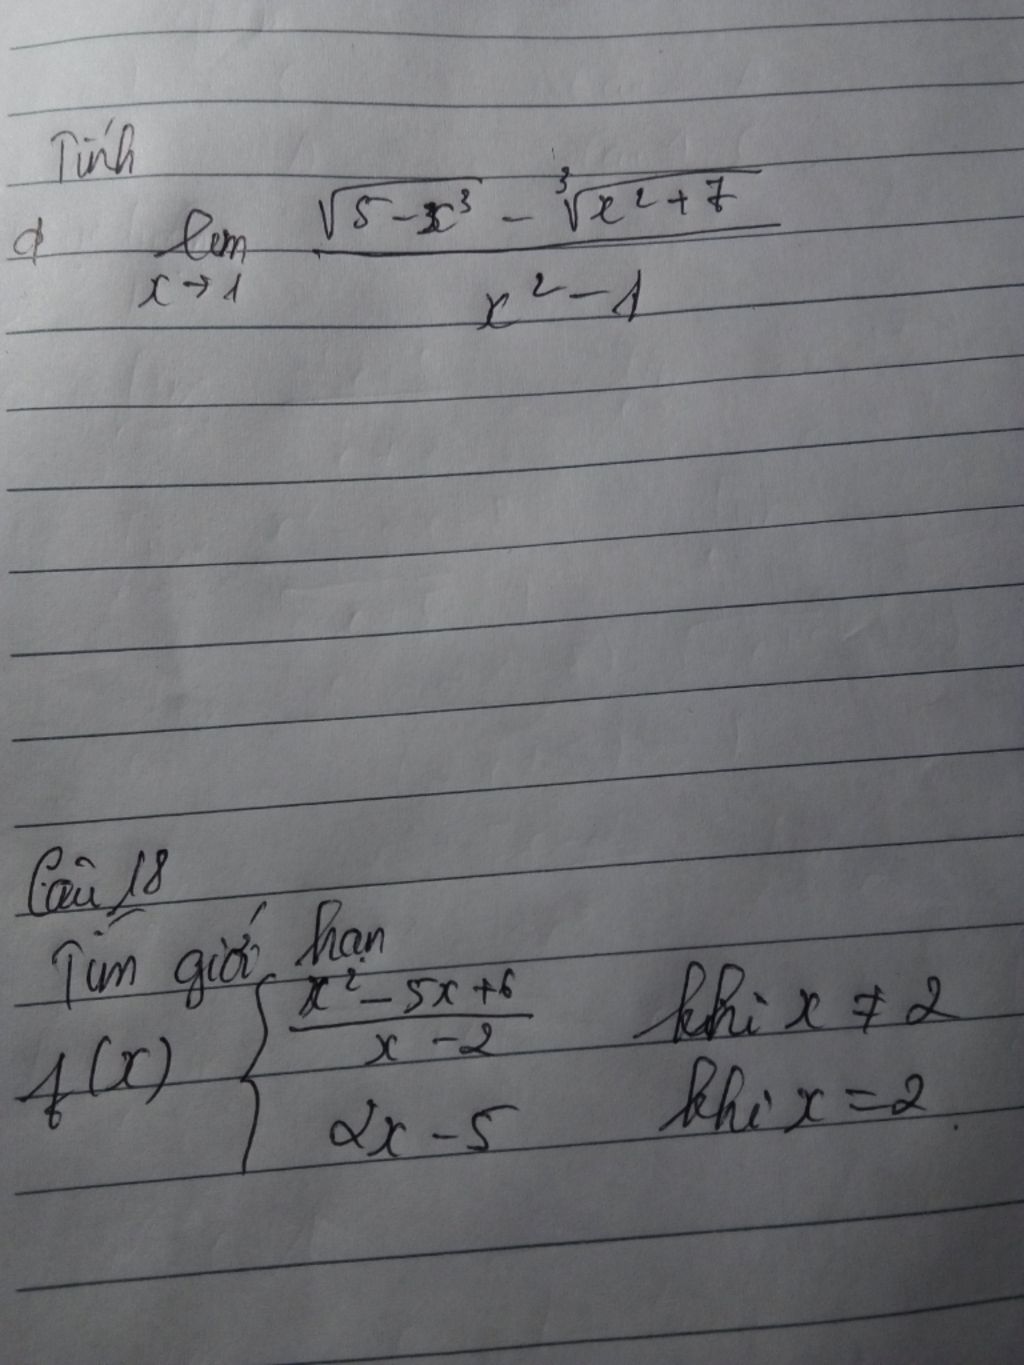 Tính
d lim x→1 (√(5-x³) - ∛(x²+7)) / (x²-1)
Câu 18
Tìm giới hạn
f(x) { (x²-5x+6)/(x-2) khi x ≠ 2
2x-5 khi x = 2